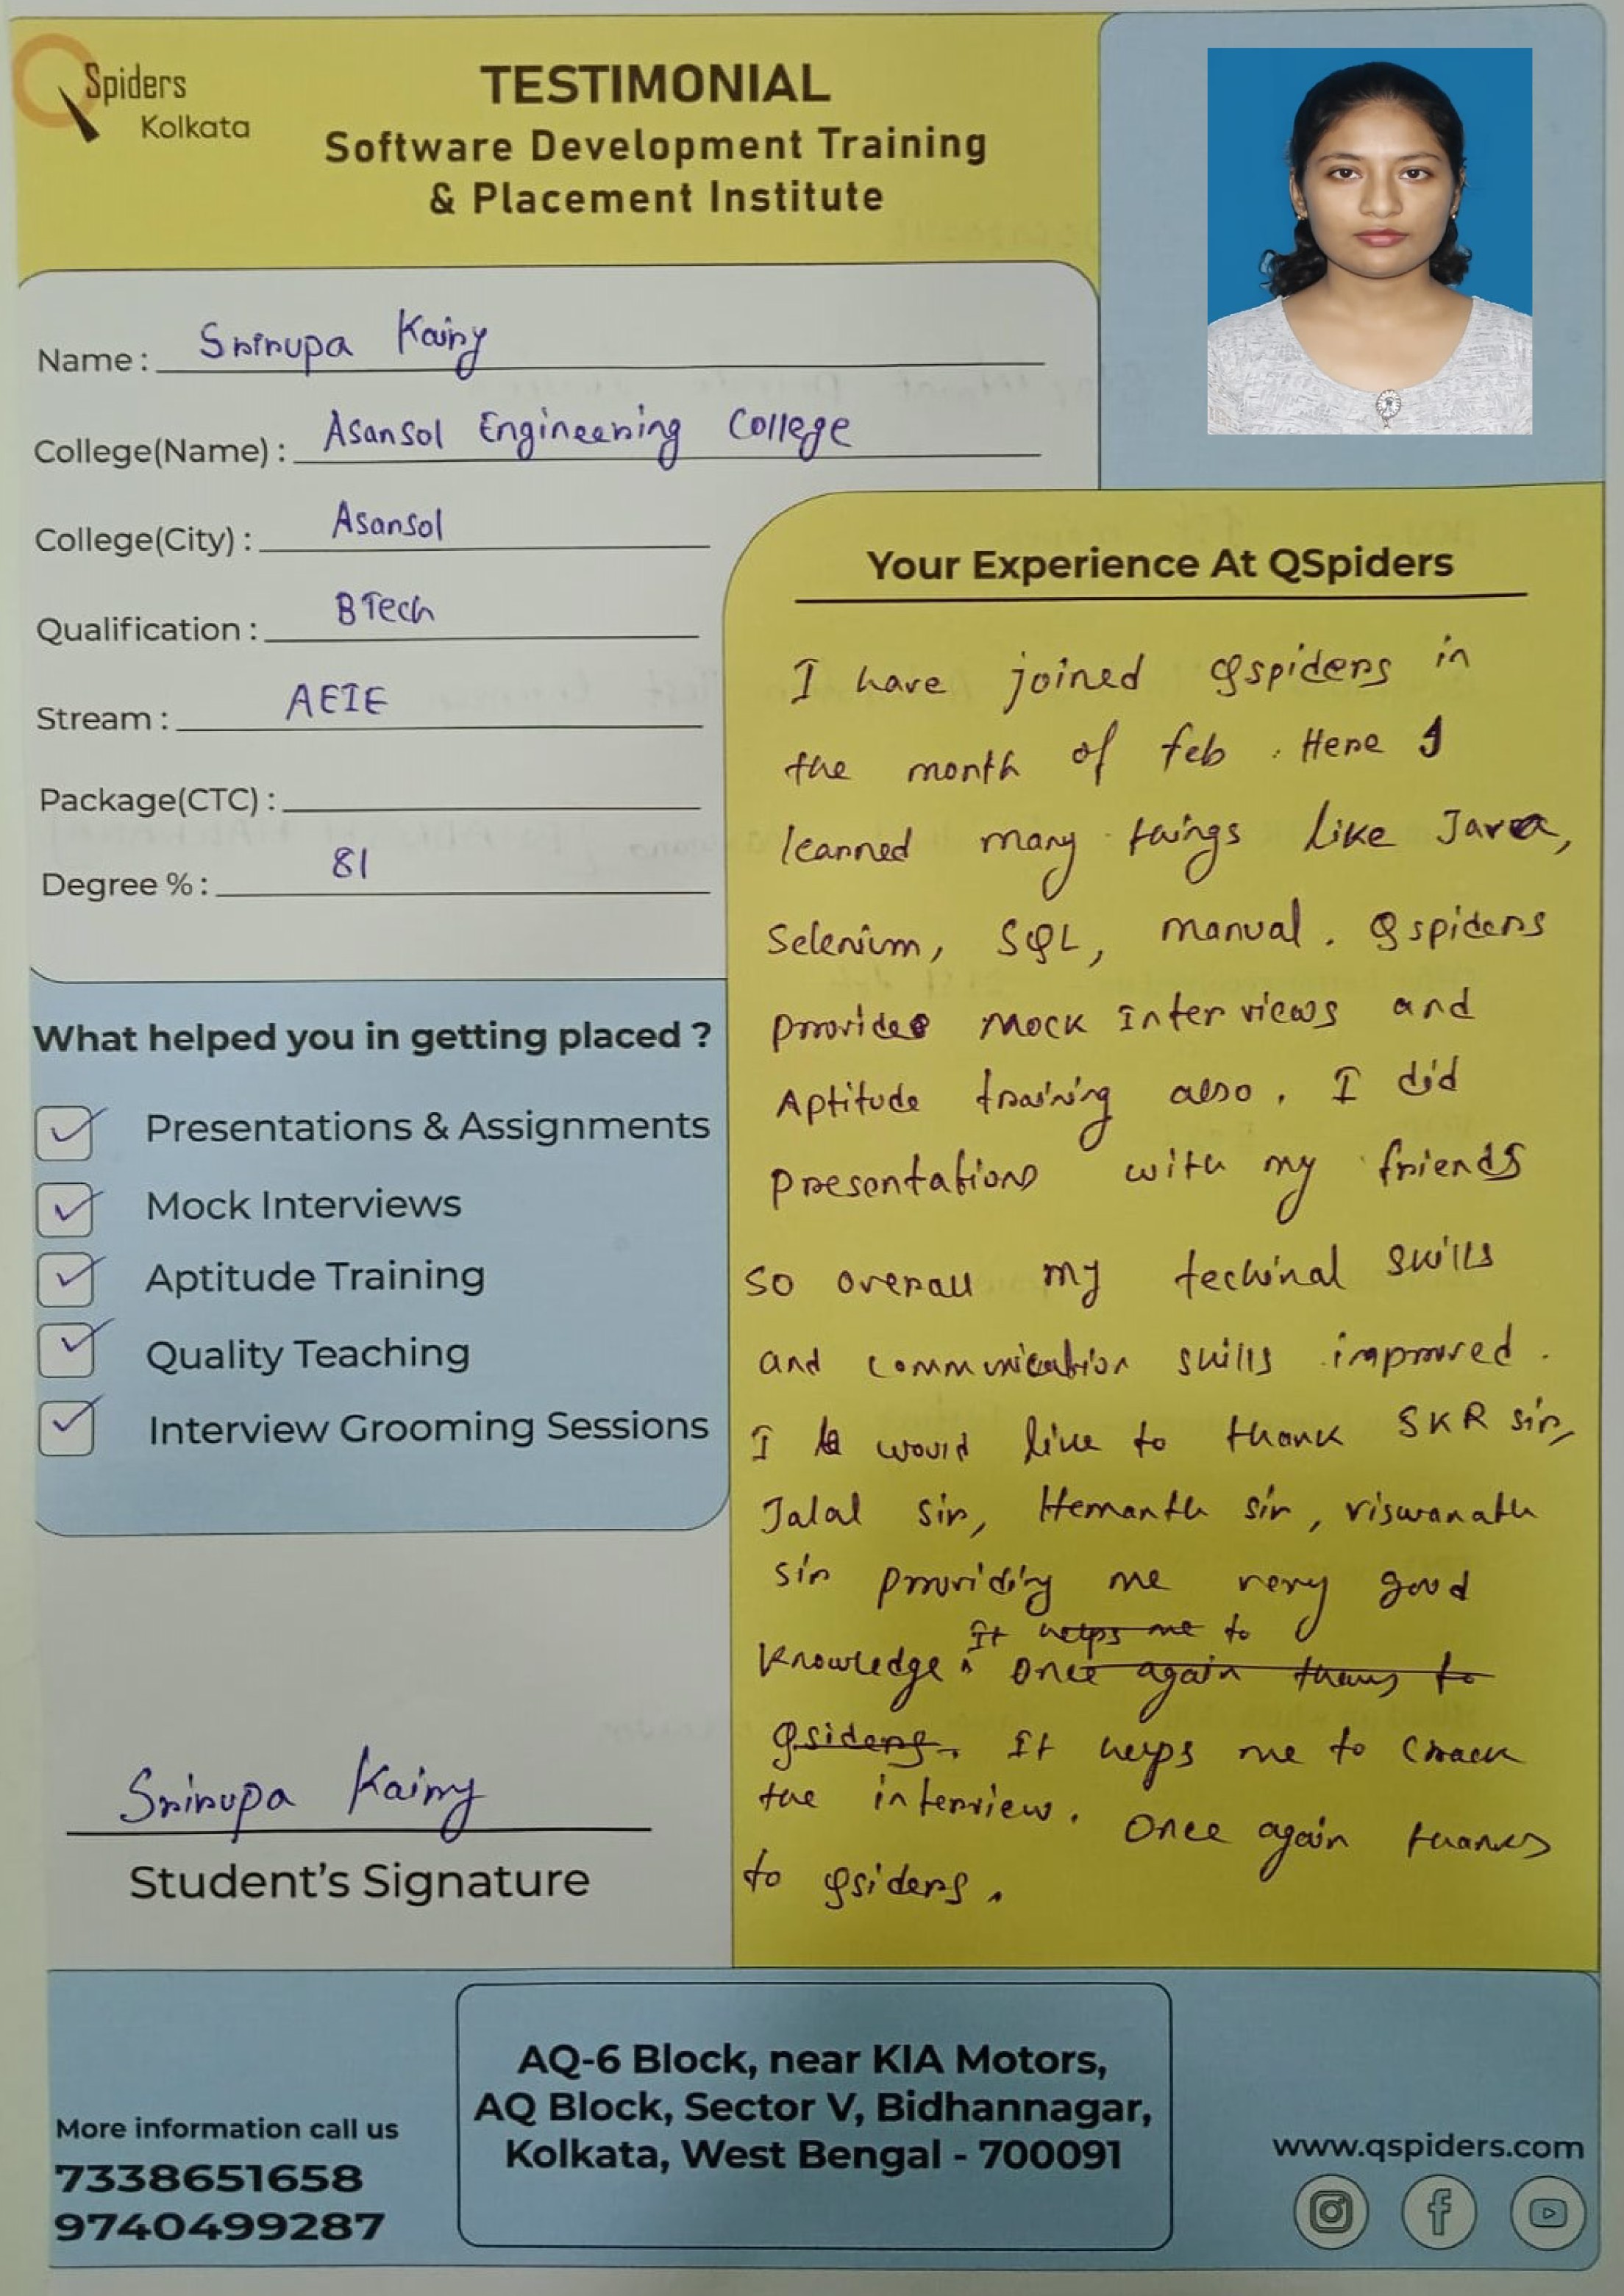 QSpiders
Kolkata
TESTIMONIAL
Software Development Training
& Placement Institute
Name : Srirupa Kairy
College(Name) : Asansol Engineering College
College(City) : Asansol
Qualification : BTech
Stream : AEIE
Package(CTC) :
Degree % : 81
What helped you in getting placed ?
Presentations & Assignments
Mock Interviews
Aptitude Training
Quality Teaching
Interview Grooming Sessions
Srirupa Kairy
Student's Signature
Your Experience At QSpiders
I have joined Qspiders in
the month of feb. Here I
learned many things like Java,
Selenium, SQL, manual. Qspiders
provides Mock Interviews and
Aptitude training also. I did
presentations with my friends
so overall my techinal skills
and communication skills improved.
I would like to thank SKR sir,
Jalal sir, Hemanth sir, viswanath
sir providing me very good
It helps me to
knowledge. Once again thanks to
Qsiders. It helps me to crack
the interview. Once again thanks
to Qsiders.
More information call us
7338651658
9740499287
AQ-6 Block, near KIA Motors,
AQ Block, Sector V, Bidhannagar,
Kolkata, West Bengal - 700091
www.qspiders.com